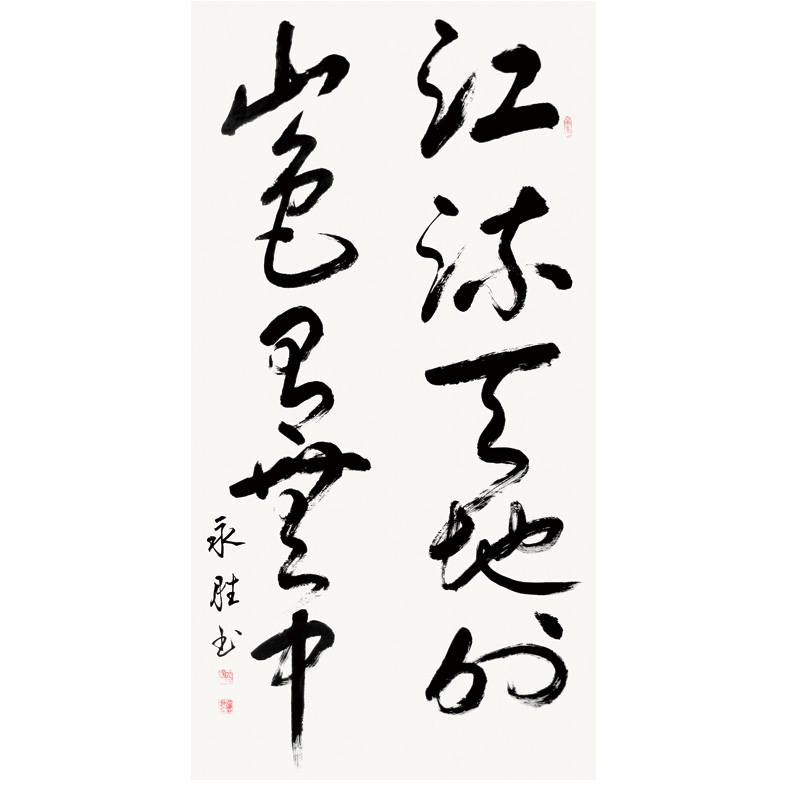 江流天地外
山色有無中
永胜书